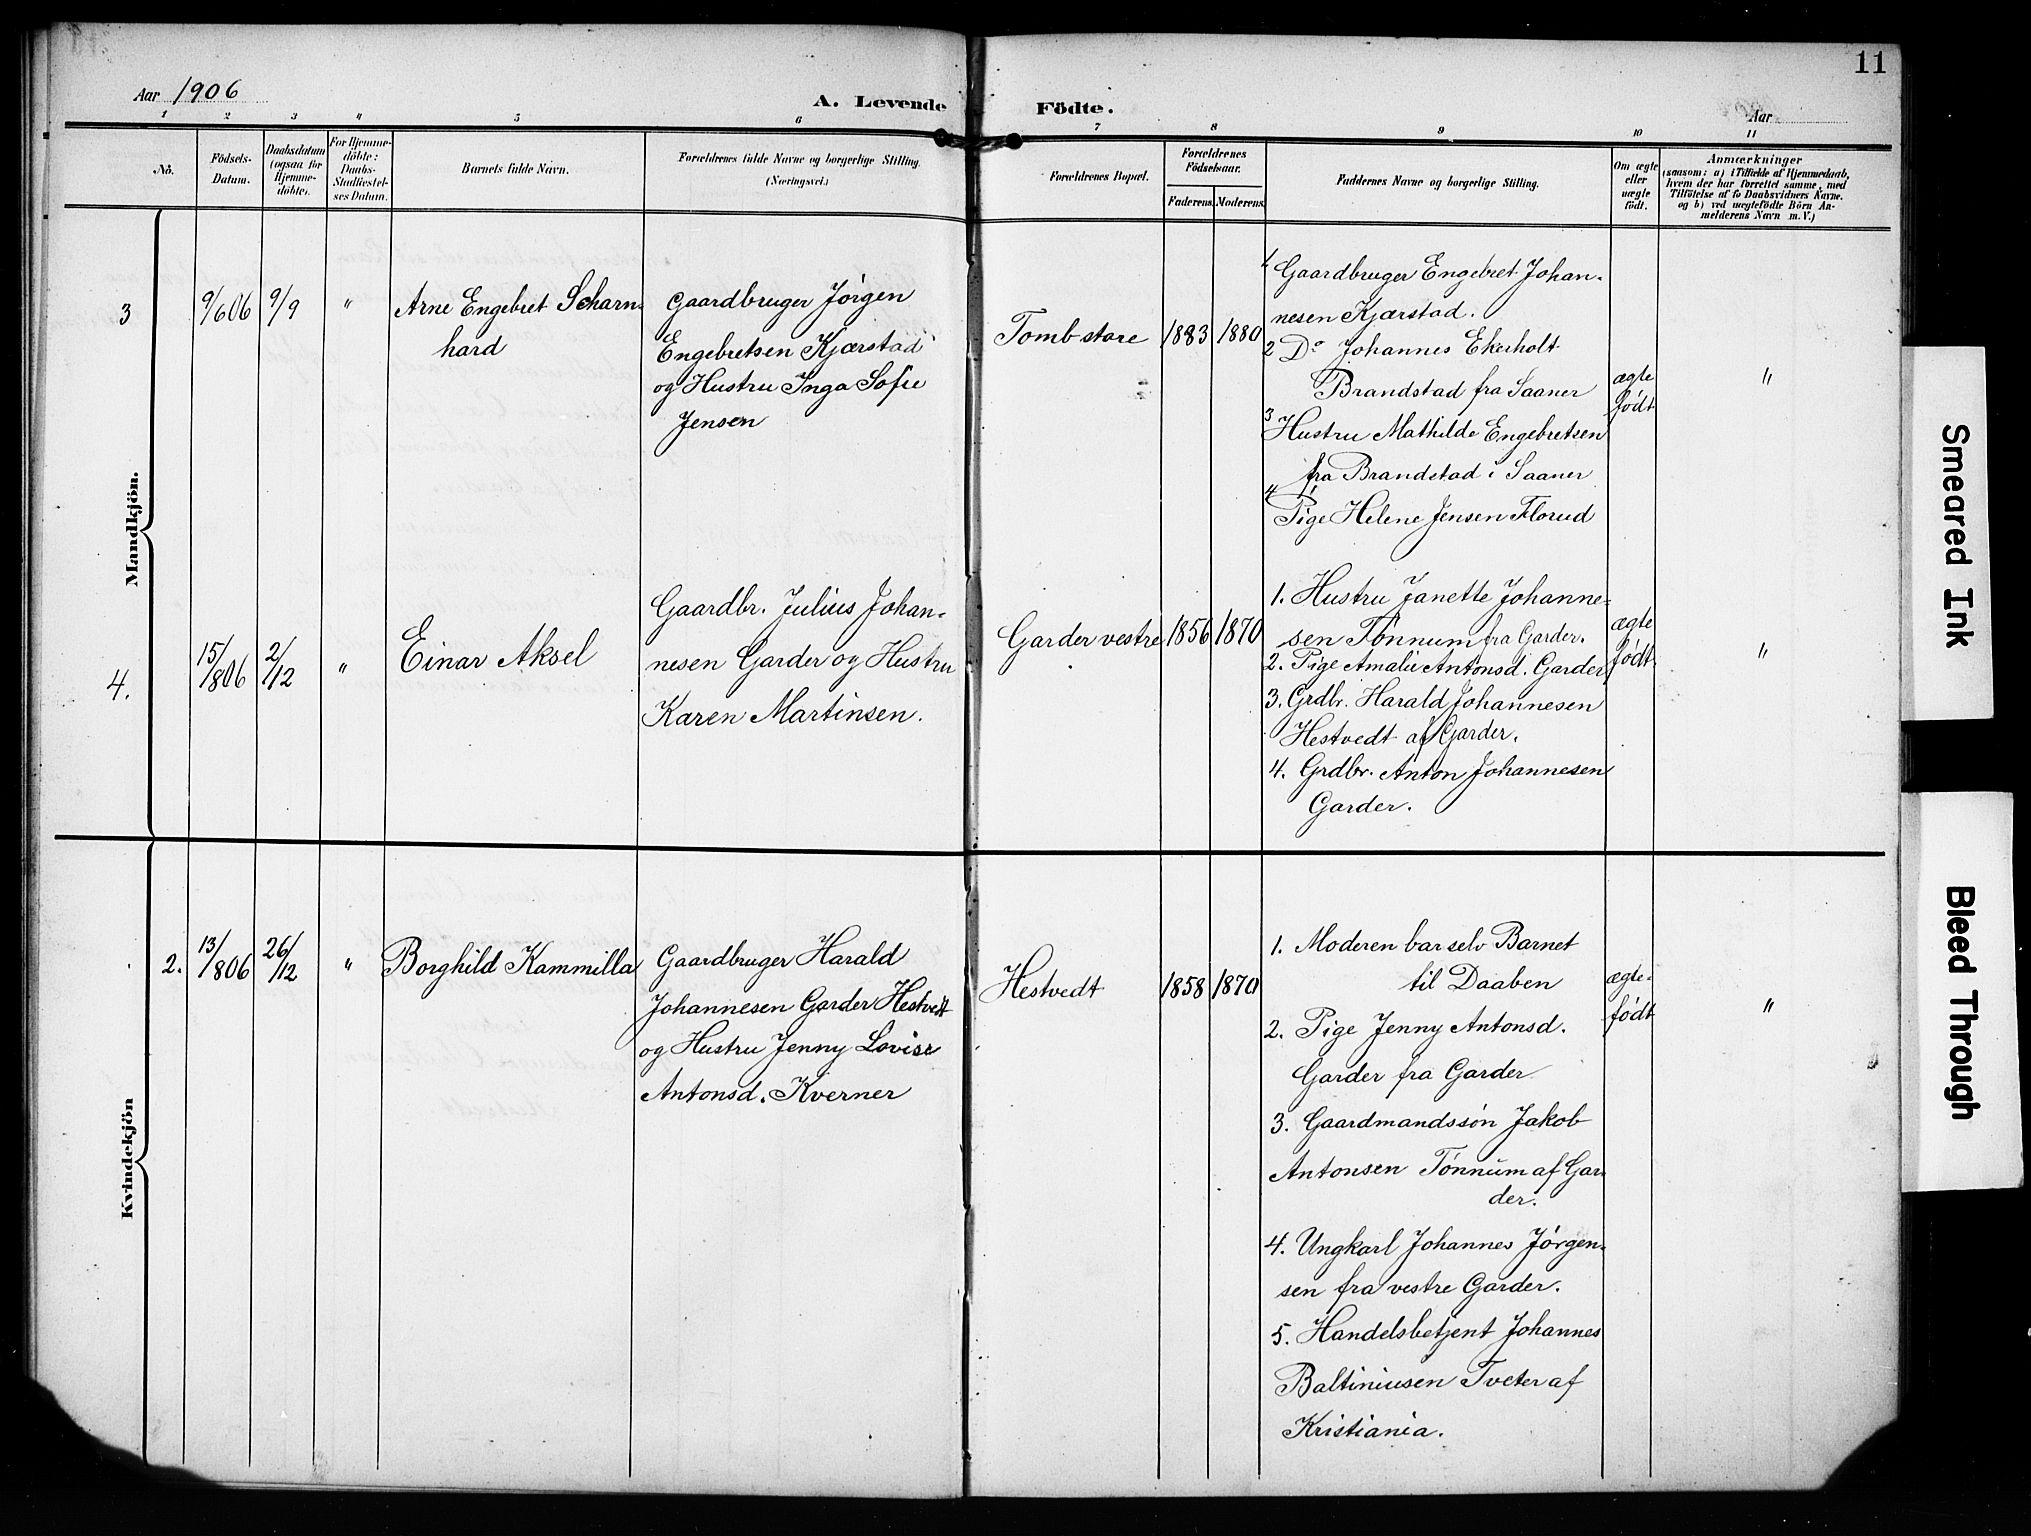 11
Aar 1906
A. Levende Födte.
Aar
1 2 3 4 5 6 7 8 9 10 11
No.
Födsels-
Datum.
Daabsdatum
(ogsaa for
Hjemme-
döbte).
For Hjemme-
döbte:
Daabs-
Stadfæstel-
ses Datum.
Barnets fulde Navn.
Forældrenes fulde Navne og borgerlige Stilling.
(Næringsvei.)
Forældrenes Bopæl.
Forældrenes
Födselsaar.
Faderens. Moderens.
Faddernes Navne og borgerlige Stilling.
Om ægte
eller
uægte
födt.
Anmærkninger
(saasom: a) i Tilfælde af Hjemmedaab,
hvem der har forrettet samme, med
Tilføielse af to Daabsvidners Navne.
og b) ved uægtefödte Börn An-
melderens Navn m. V.)
Mandkjön.
3
9/6 06
9/9
"
Arne Engebret Scharn-
hard
Gaardbruger Jørgen
Engebretsen Kjærstad
og Hustru Inga Sofie
Jensen
Tomb store
1883
1880
1 Gaardbruger Engebret Johan-
nesen Kjærstad.
2 Do Johannes Ekerholt
Brandstad fra Saaner
3 Hustru Mathilde Engebretsen
fra Brandstad i Saaner
4 Pige Helene Jensen Florud
ægte
født
"
4.
15/8 06
2/12
"
Einar Aksel
Gaardbr. Julius Johan-
nesen Garder og Hustru
Karen Martinsen.
Garder vestre
1856
1870
1. Hustru Janette Johanne-
sen Tønnum fra Garder.
2. Pige Amalie Antonsd. Garder
3. Grdbr. Harald Johannesen
Hestvedt af Garder.
4. Grdbr. Anton Johannesen
Garder.
ægte
født
"
Kvindekjön
2.
13/8 06
26/12
"
Borghild Kammilla
Gaardbruger Harald
Johannesen Garder Hestvedt
og Hustru Jenny Lovise
Antonsd. Kverner
Hestvedt
1858
1870
1. Moderen bar selv Barnet
til Daaben
2. Pige Jenny Antonsd.
Garder fra Garder
3. Gaardmandssøn Jakob
Antonsen Tønnum af Gar-
der.
4. Ungkarl Johannes Jørgen-
sen fra vestre Garder.
5. Handelsbetjent Johannes
Baltiniusen Tveter af
Kristiania.
ægte-
født
"
Smeared Ink
Bleed Through